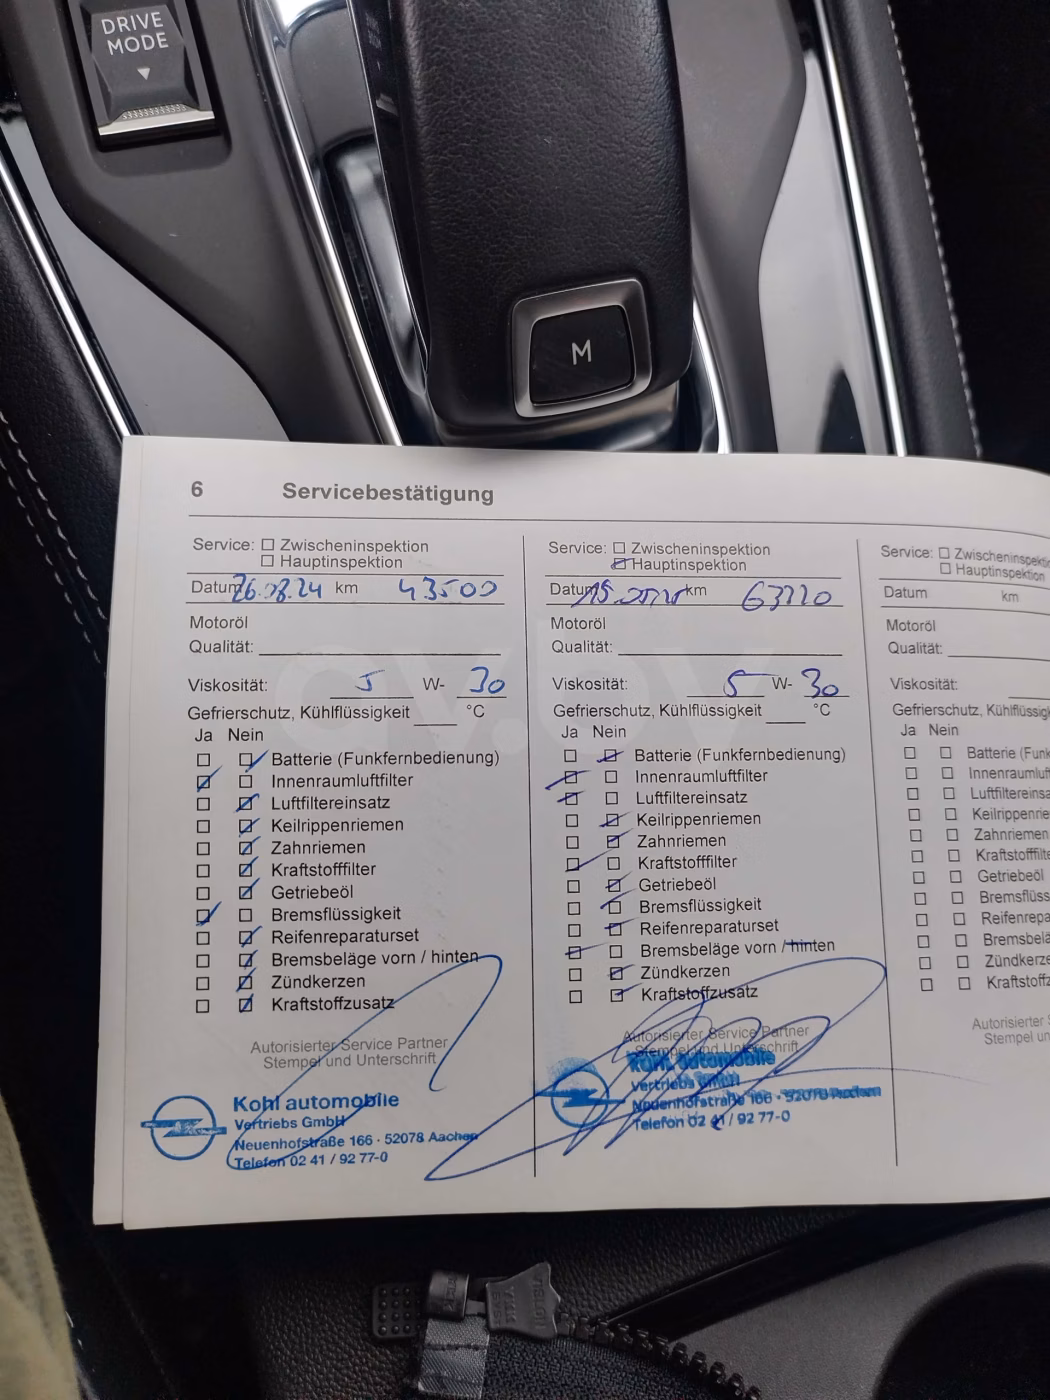 DRIVE
MODE
M
6 Servicebestätigung
Service: Zwischeninspektion
Hauptinspektion
Datum 26.08.24 km 43500
Motoröl
Qualität:
Viskosität: 5 W- 30
Gefrierschutz, Kühlflüssigkeit °C
Ja Nein
Batterie (Funkfernbedienung)
Innenraumluftfilter
Luftfiltereinsatz
Keilrippenriemen
Zahnriemen
Kraftstofffilter
Getriebeöl
Bremsflüssigkeit
Reifenreparaturset
Bremsbeläge vorn / hinten
Zündkerzen
Kraftstoffzusatz
Autorisierter Service Partner
Stempel und Unterschrift
Kohl automobile
Vertriebs GmbH
Neuenhofstraße 166 · 52078 Aachen
Telefon 02 41 / 92 77-0
Service: Zwischeninspektion
Hauptinspektion
Datum km
Motoröl
Qualität:
Viskosität: 5 W- 30
Gefrierschutz, Kühlflüssigkeit °C
Ja Nein
Batterie (Funkfernbedienung)
Innenraumluftfilter
Luftfiltereinsatz
Keilrippenriemen
Zahnriemen
Kraftstofffilter
Getriebeöl
Bremsflüssigkeit
Reifenreparaturset
Bremsbeläge vorn / hinten
Zündkerzen
Kraftstoffzusatz
Autorisierter Service Partner
Stempel und Unterschrift
Kohl automobile
Vertriebs GmbH
Neuenhofstraße 166 · 52078 Aachen
Telefon 02 41 / 92 77-0
Service: Zwischeninspektio
Hauptinspektion
Datum km
Motoröl
Qualität:
Viskosität: W-
Gefrierschutz, Kühlflüssig
Ja Nein
Batterie (Funk
Innenraumluft
Luftfiltereinsa
Keilrippenrie
Zahnriemen
Kraftstofffilte
Getriebeöl
Bremsflüss
Reifenrepa
Bremsbelä
Zündkerze
Kraftstoffz
Autorisierter
Stempel un